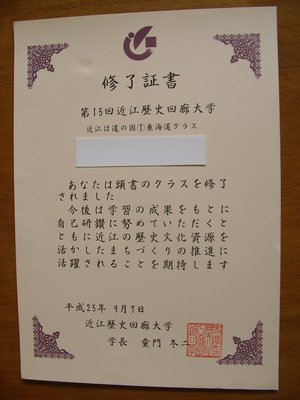 修了証書
第15回近江歴史回廊大学
近江は道の国①東海道クラス
あなたは頭書のクラスを修了
されました
今後は学習の成果をもとに
自己研鑽に努めていただくと
ともに近江の歴史文化資源を
活かしたまちづくりの推進に
活躍されることを期待します
平成25年 9月7日
近江歴史回廊大学
学長 童門 冬二